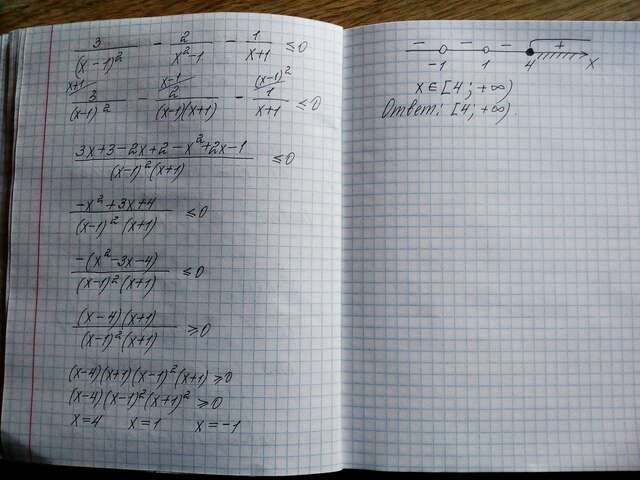 3/(x-1)² - 2/(x²-1) - 1/(x+1) ≤ 0
x+1 x-1 (x-1)²
3/(x-1)² - 2/((x-1)(x+1)) - 1/(x+1) ≤ 0
(3x+3-2x+2-x²+2x-1)/((x-1)²(x+1)) ≤ 0
(-x²+3x+4)/((x-1)²(x+1)) ≤ 0
(-(x²-3x-4))/((x-1)²(x+1)) ≤ 0
((x-4)(x+1))/((x-1)²(x+1)) ≥ 0
(x-4)(x+1)(x-1)²(x+1) ≥ 0
(x-4)(x-1)²(x+1)² ≥ 0
x=4 x=1 x=-1
- - - +
-1 1 4 x
x∈[4;+∞)
Ответ: [4;+∞).